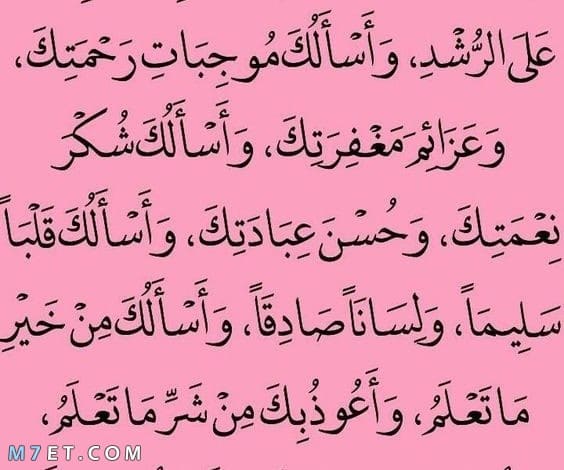 عَلَى الرُّشْدِ، وَأَسْأَلُكَ مُوجِبَاتِ رَحْمَتِكَ،
وَعَزَائِمَ مَغْفِرَتِكَ، وَأَسْأَلُكَ شُكْرَ
نِعْمَتِكَ، وَحُسْنَ عِبَادَتِكَ، وَأَسْأَلُكَ قَلْبَاً
سَلِيمَاً، وَلِسَانَاً صَادِقَاً، وَأَسْأَلُكَ مِنْ خَيْرِ
مَا تَعْلَمُ، وَأَعُوذُ بِكَ مِنْ شَرِّ مَا تَعْلَمُ،
M7ET.COM